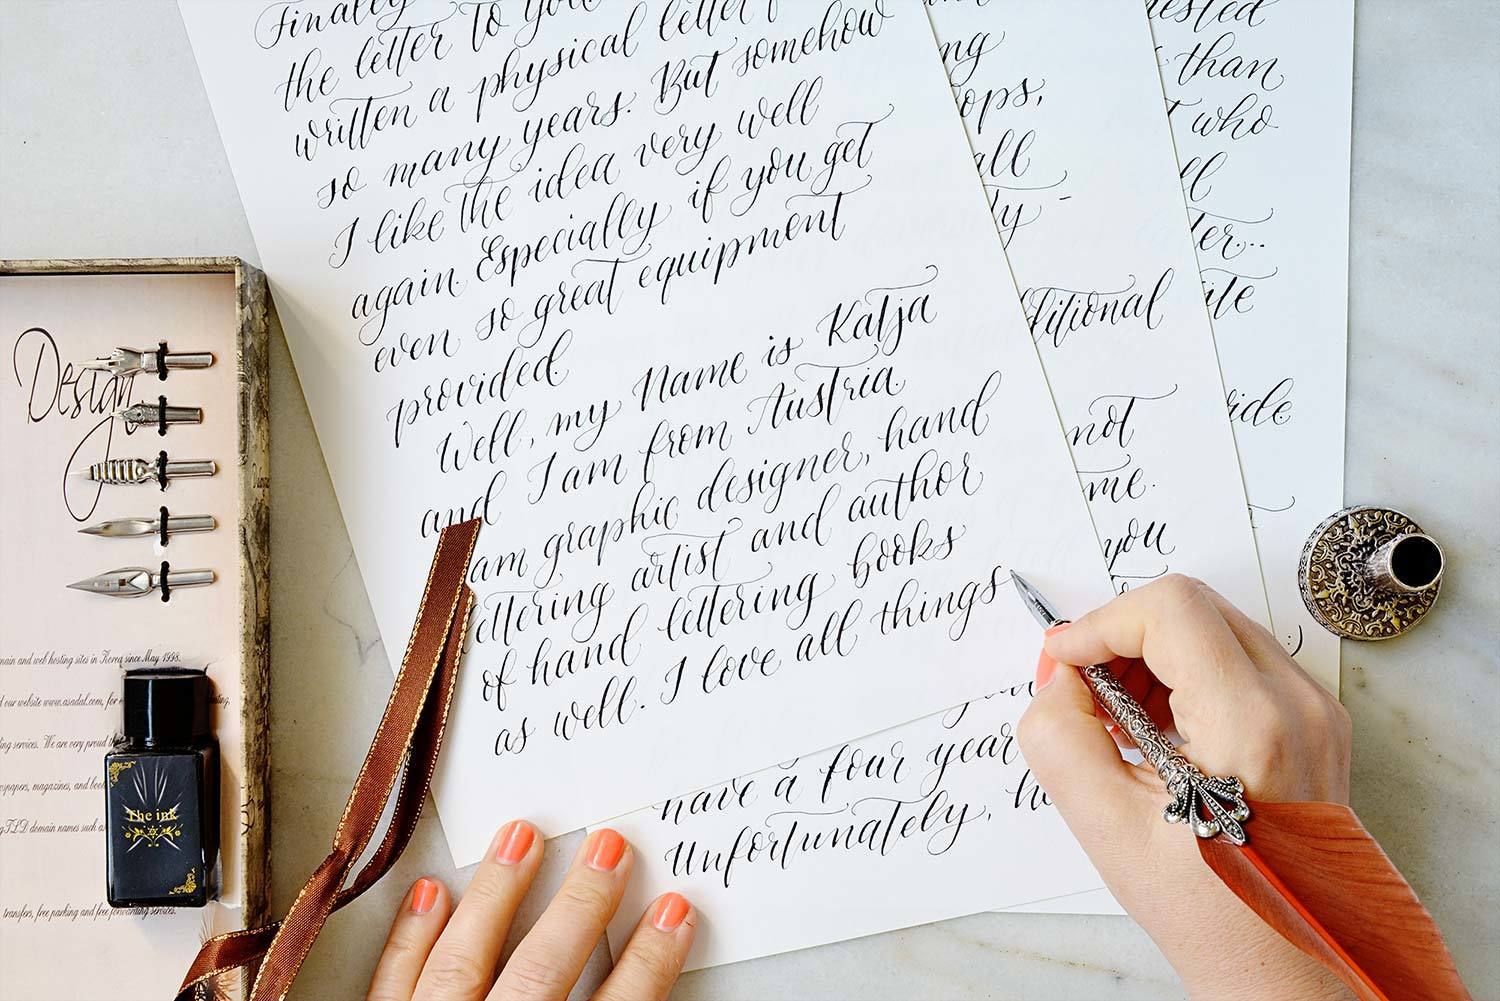 Finally
the letter to you
written a physical letter
so many years. But somehow
I like the idea very well
again. Especially if you get
even so great equipment
provided.
Well, my Name is Katja
and I am from Austria.
am graphic designer, hand
lettering artist and author
of hand lettering books
as well. I love all things
have a four year
Unfortunately,
ng
ops,
all
ly -
ditional
not
me.
you
ested
than
who
ll
ter...
ite
ide
:)
Design
main and web hosting sites in Korea since May 1998.
our website www.asadal.com, for
hosting
ing services. We are very proud
newspapers, magazines, and
gTLD domain names such as
transfers, free parking and free forwarding services.
The ink